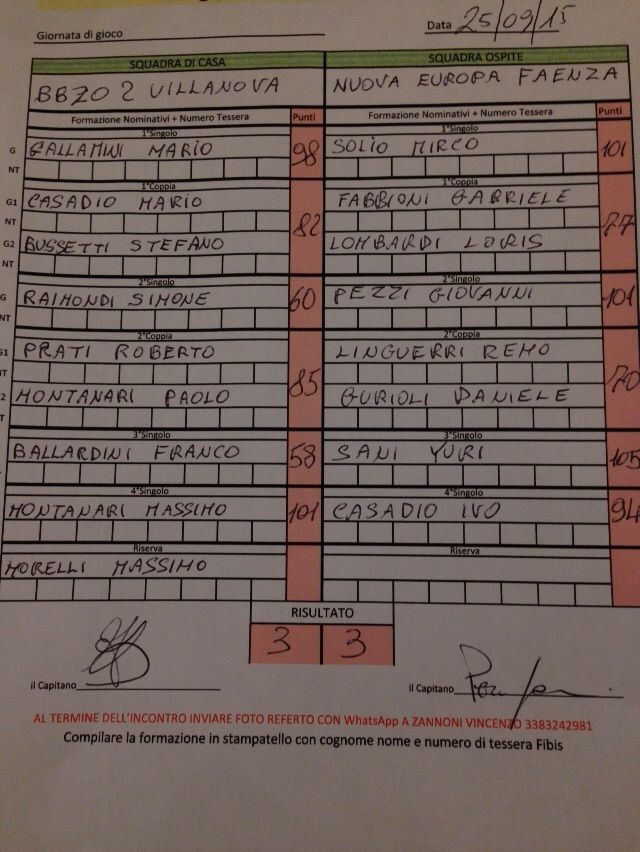 Giornata di gioco
Data 25/09/15
SQUADRA DI CASA
SQUADRA OSPITE
BBZO 2 VILLANOVA
NUOVA EUROPA FAENZA
Formazione Nominativi + Numero Tessera Punti
Formazione Nominativi + Numero Tessera Punti
1°Singolo
1°Singolo
G GALLAMINI MARIO 98
SOLIO MIRCO 101
NT
1°Coppia
1°Coppia
G1 CASADIO MARIO
FABBIONI GABRIELE
NT
82
77
G2 BUSSETTI STEFANO
LOMBARDI LORIS
NT
2°Singolo
2°Singolo
G RAIMONDI SIMONE 60
PEZZI GIOVANNI 101
NT
2°Coppia
2°Coppia
G1 PRATI ROBERTO
LINGUERRI REMO
NT
85
70
2 MONTANARI PAOLO
GURIOLI DANIELE
T
3°Singolo
3°Singolo
BALLARDINI FRANCO 58
SANI YURI 105
4°Singolo
4°Singolo
MONTANARI MASSIMO 101
CASADIO IVO 94
Riserva
Riserva
MORELLI MASSIMO
RISULTATO
3 3
il Capitano
il Capitano
AL TERMINE DELL'INCONTRO INVIARE FOTO REFERTO CON WhatsApp A ZANNONI VINCENZO 3383242981
Compilare la formazione in stampatello con cognome nome e numero di tessera Fibis